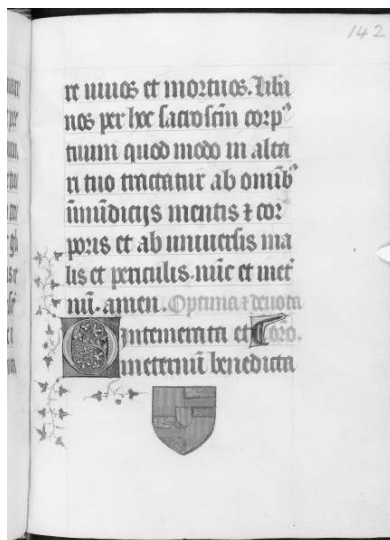 142
re viuos et mortuos. Libã
nos per hoc sacrosctm̃ corp⁹
tuum quod modo in alta
ri tuo tractatur ab omĩb⁹
ĩmũdicijs mentis ⁊ cor
poris et ab vniuersis ma
lis et periculis. nũc et in et̃
nũ. amen. Optima ⁊ deuota
O intemerata et oro.
in eternũ benedicta